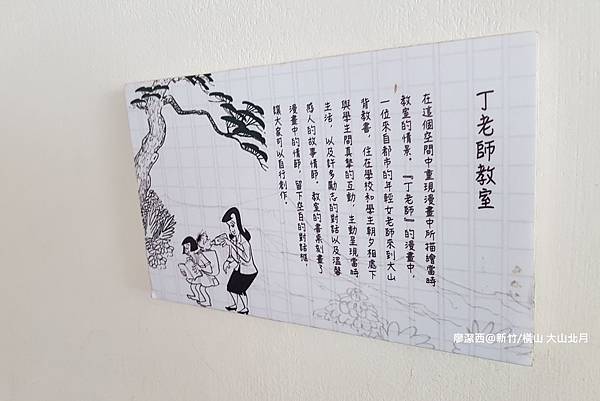 丁老師教室
在這個空間中重現漫畫中所描繪當時
教室的情景。『丁老師』的漫畫中，
一位來自都市的年輕女老師來到大山
背教書，住在學校和學生朝夕相處下
與學生間真摯的互動，生動呈現當時
生活，以及許多勵志的對話以及溫馨
感人的故事情節。教室的書桌刻畫了
漫畫中的情節，留下空白的對話框，
讓大家可以自行創作。
廖潔西@新竹/橫山 大山北月